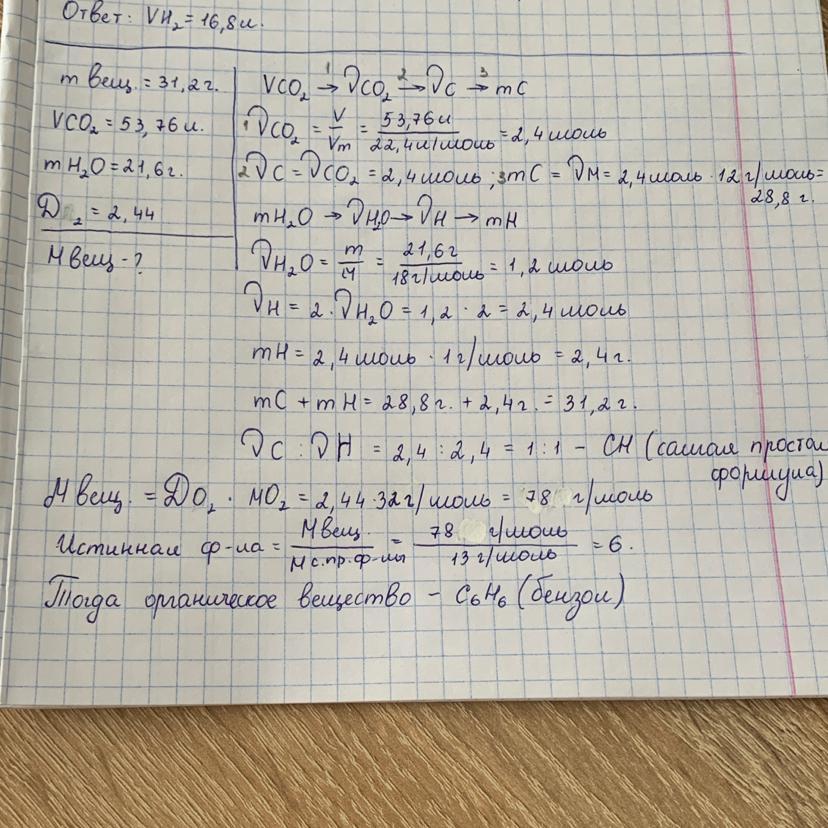 Ответ: VH₂ = 16,8 л.
m вещ. = 31,2 г.
VCO₂ = 53,76 л.
mH₂O = 21,6 г.
D ₂ = 2,44
M вещ - ?
VCO₂ →¹ νCO₂ →² νC →³ mC
1 νCO₂ = V/Vm = 53,76 л/22,4 л/моль = 2,4 моль
2 νC = νCO₂ = 2,4 моль; 3 mC = νM = 2,4 моль · 12 г/моль =
28,8 г.
mH₂O → νH₂O → νH → mH
νH₂O = m/M = 21,6 г/18 г/моль = 1,2 моль
νH = 2 · νH₂O = 1,2 · 2 = 2,4 моль
mH = 2,4 моль · 1 г/моль = 2,4 г.
mC + mH = 28,8 г. + 2,4 г. = 31,2 г.
νC : νH = 2,4 : 2,4 = 1:1 – CH (самая простая
формула)
M вещ. = DO₂ · MO₂ = 2,44 · 32 г/моль = 78 г/моль
Истинная ф-ла = M вещ./M с.пр.ф-лы = 78 г/моль/13 г/моль = 6.
Тогда органическое вещество – C₆H₆ (бензол)